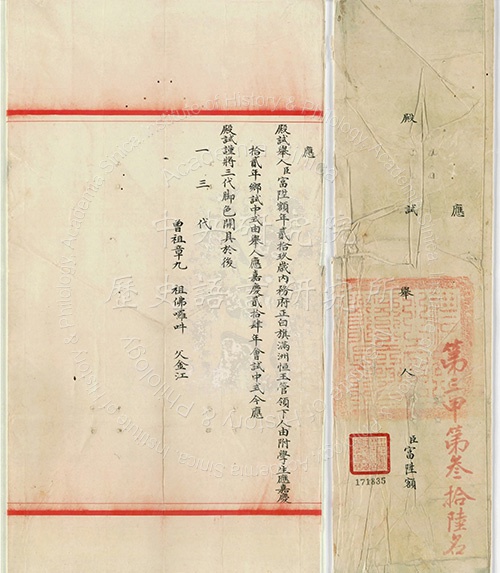 應
殿試舉人臣富陞額年貳拾玖歲內務府正白旗滿洲恒玉管領下人由附學生應嘉慶
拾貳年鄉試中式由舉人應嘉慶貳拾肆年會試中式今應
殿試謹將三代脚色開具於後
一三代
曾祖章九 祖佛囉 父金江
應
殿試舉人臣富陞額
第三甲第叁拾陸名
171835
中央研究院
歷史語言研究所